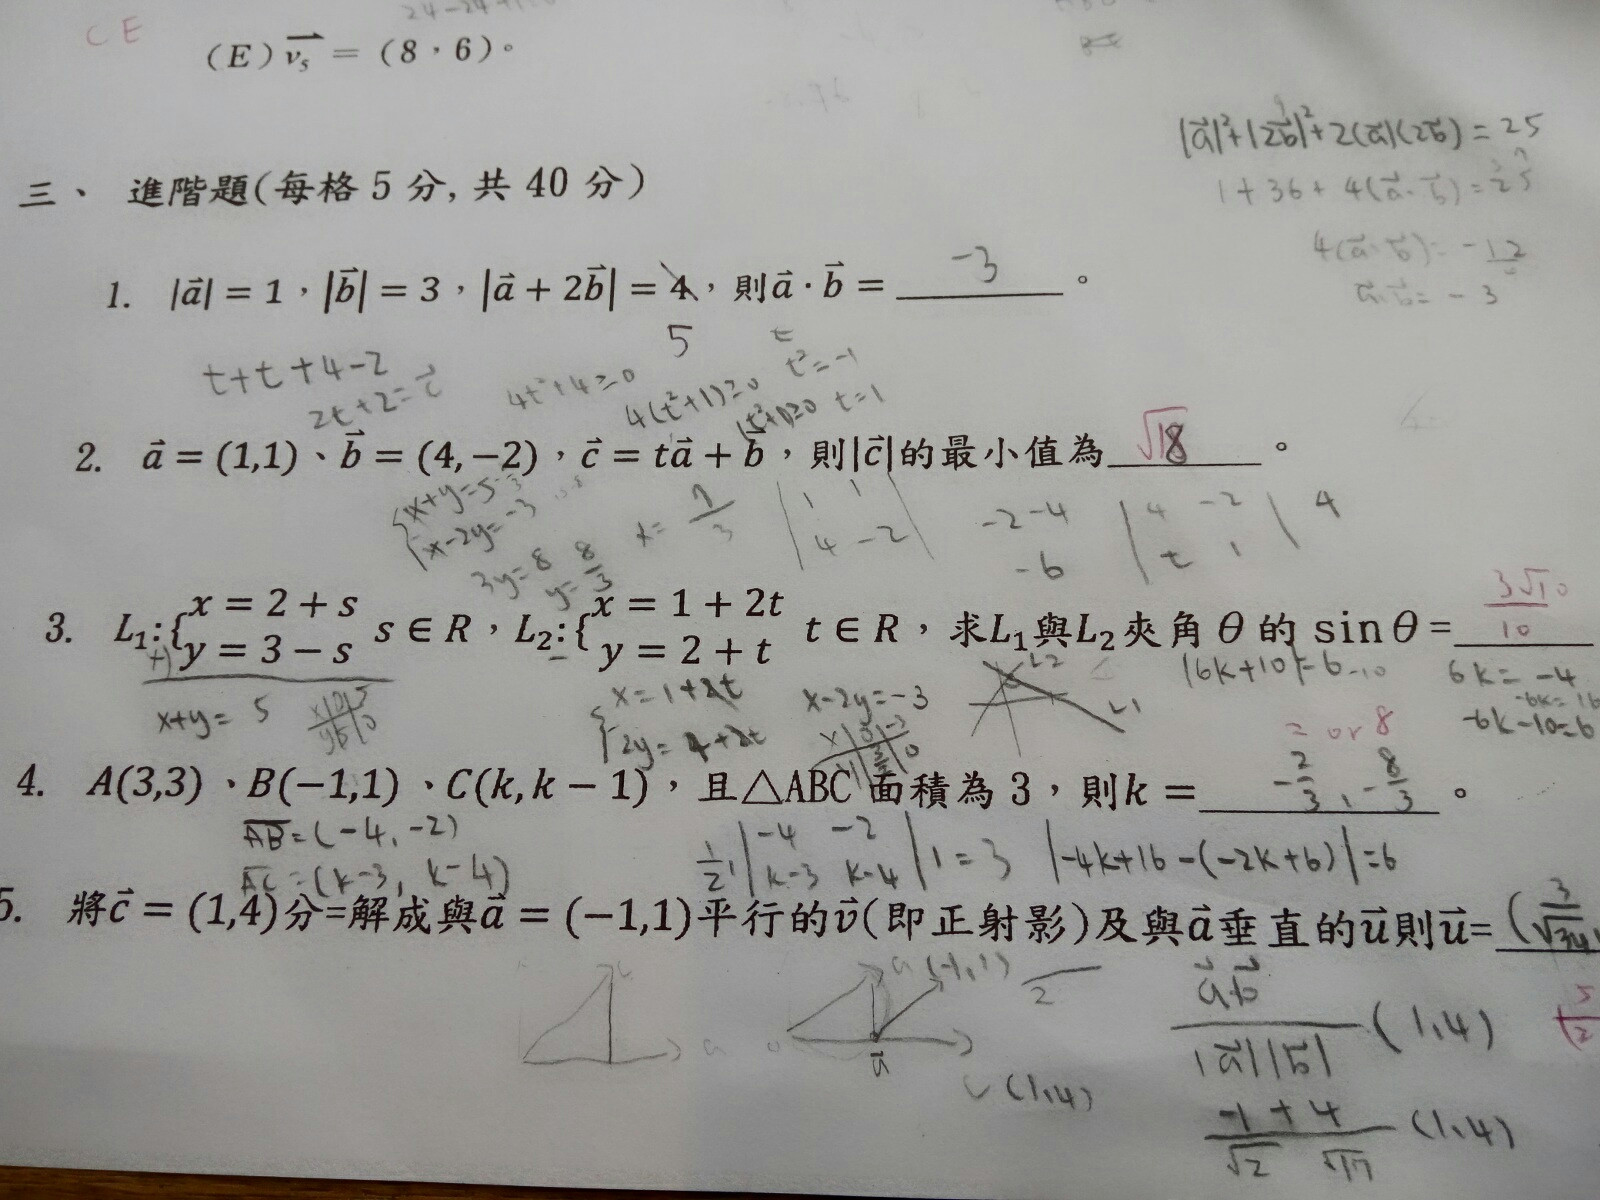 CE
(E) v₅ = (8,6)。
|a|²+|2b|²+2(a)(2b) = 25
三、 進階題(每格 5 分, 共 40 分)
1+36+4(a·b)=25
4(a·b)=-12
a·b=-3
1. |a⃗| = 1,|b⃗| = 3,|a⃗ + 2b⃗| = 4,則a⃗ · b⃗ = -3 。
5
t+t+4-2
2t+2=
4t²+4≥0
4(t²+1)≥0
t²=-1
t=1
2. a⃗ = (1,1)、b⃗ = (4,−2),c⃗ = ta⃗ + b⃗,則|c⃗|的最小值為 √18 。
x+y=5
x-2y=-3
3y=8 y=8/3
x=7/3
1 1
4 -2
-2-4
-6
4 -2
t 1
4
3. L₁:{x = 2 + s y = 3 − s s ∈ R,L₂:{x = 1 + 2t y = 2 + t t ∈ R,求L₁與L₂夾角 θ 的 sin θ = 3√10/10
x+y=5
x=1+2t
2y=4+2t
x-2y=-3
L2
L1
|6k+10|=6
6k=-4
-6k=16
-6k-10=6
= or 8
4. A(3,3)、B(−1,1)、C(k, k − 1),且△ABC 面積為 3,則k = -2/3、-8/3 。
AB=(-4,-2)
AC=(k-3, k-4)
1/2|-4 -2 k-3 k-4|=3
|-4k+16-(-2k+6)|=6
5. 將c⃗ = (1,4)分=解成與a⃗ = (−1,1)平行的v⃗(即正射影)及與a⃗垂直的u⃗則u⃗= (3/√34,
a(-1,1)
2
(1,4)
ab/|a||b| (1,4)
(5/2
-1+4/√2 √17 (1,4)